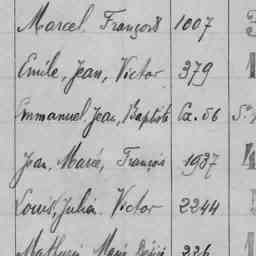 Marcel, François 1007
Emile, Jean, Victor 379
Emmanuel, Jean, Baptiste Cx. 56
Jean, Marie, François 1937
Louis, Julien Victor 2244
Mathurin Marie 226